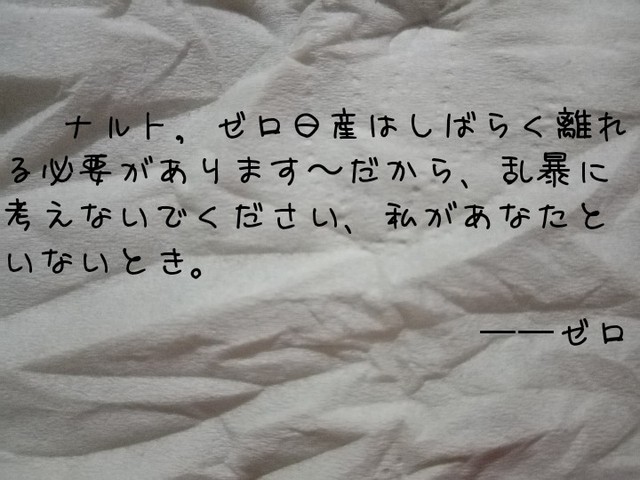 ナルト，ゼロ日産はしばらく離れ
る必要があります～だから、乱暴に
考えないでください、私があなたと
いないとき。
——ゼロ